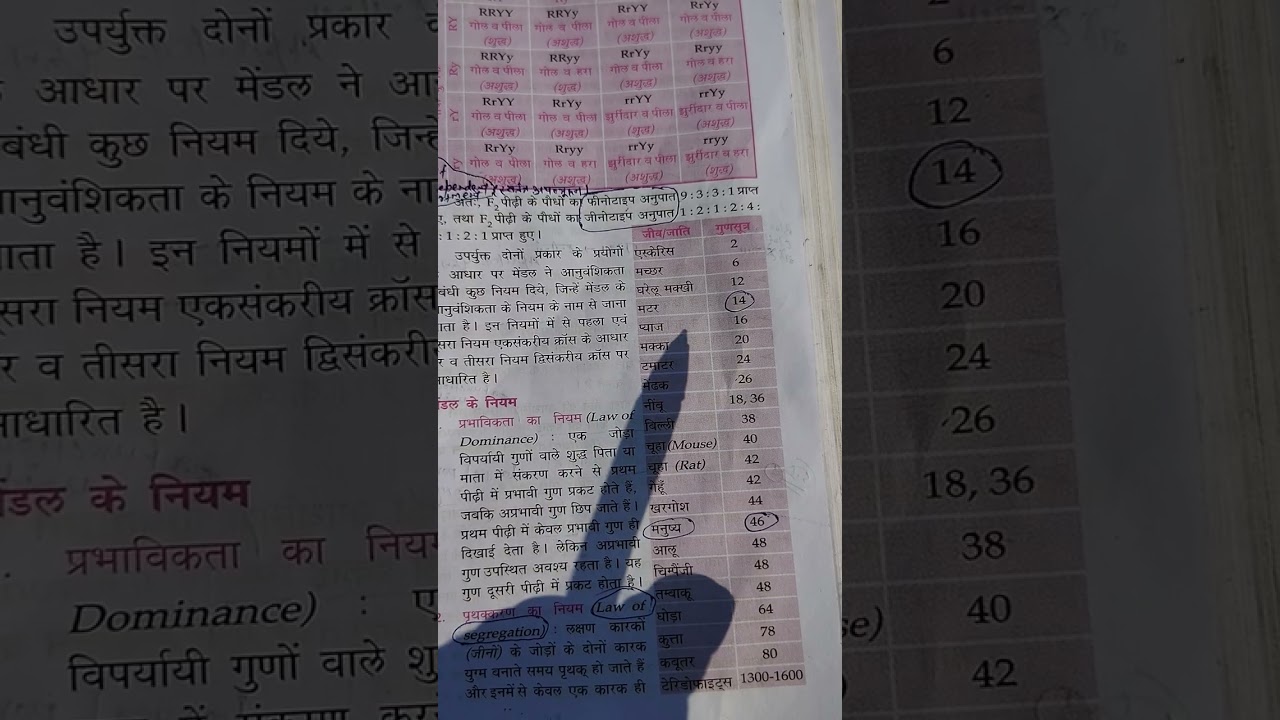 RRYY RRYy RrYY RrYy
RY गोल व पीला गोल व पीला गोल व पीला गोल व पीला
(शुद्ध) (अशुद्ध) (अशुद्ध) (अशुद्ध)
RRYy RRyy RrYy Rryy
Ry गोल व पीला गोल व हरा गोल व पीला गोल व हरा
(अशुद्ध) (शुद्ध) (अशुद्ध) (अशुद्ध)
RrYY RrYy rrYY rrYy
rY गोल व पीला गोल व पीला झुर्रीदार व पीला झुर्रीदार व पीला
(अशुद्ध) (अशुद्ध) (शुद्ध) (अशुद्ध)
RrYy Rryy rrYy rryy
गोल व पीला गोल व हरा झुर्रीदार व पीला झुर्रीदार व हरा
(अशुद्ध) (अशुद्ध) (अशुद्ध) (शुद्ध)
अतः F2 पीढ़ी के पौधों का फीनोटाइप अनुपात 9 : 3 : 3 : 1 प्राप्त
, तथा F2 पीढ़ी के पौधों का जीनोटाइप अनुपात 1 : 2 : 1 : 2 : 4 :
: 1 : 2 : 1 प्राप्त हुए।
उपर्युक्त दोनों प्रकार के प्रयोगों
आधार पर मेंडल ने आनुवंशिकता
बंधी कुछ नियम दिये, जिन्हें मेंडल के
नुवंशिकता के नियम के नाम से जाना
ाता है। इन नियमों में से पहला एवं
सरा नियम एकसंकरीय क्रॉस के आधार
र व तीसरा नियम द्विसंकरीय क्रॉस पर
ाधारित है।
ंडल के नियम
प्रभाविकता का नियम (Law of
Dominance) : एक जोड़ा
विपर्यायी गुणों वाले शुद्ध पिता या
माता में संकरण करने से प्रथम
पीढ़ी में प्रभावी गुण प्रकट होते हैं,
जबकि अप्रभावी गुण छिप जाते हैं।
प्रथम पीढ़ी में केवल प्रभावी गुण ही
दिखाई देता है। लेकिन अप्रभावी
गुण उपस्थित अवश्य रहता है। यह
गुण दूसरी पीढ़ी में प्रकट होता है।
2. पृथक्करण का नियम (Law of
segregation) : लक्षण कारकों
(जीनों) के जोड़ों के दोनों कारक
युग्म बनाते समय पृथक् हो जाते हैं
और इनमें से केवल एक कारक ही
जीव/जाति गुणसूत्र
एस्केरिस 2
मच्छर 6
घरेलू मक्खी 12
मटर 14
प्याज 16
मक्का 20
टमाटर 24
मेढक 26
नींबू 18, 36
बिल्ली 38
चूहा (Mouse) 40
चूहा (Rat) 42
गेहूँ 42
खरगोश 44
मनुष्य 46
आलू 48
चिम्पैंजी 48
तम्बाकू 48
घोड़ा 64
कुत्ता 78
कबूतर 80
टेरिडोफाइट्स 1300-1600